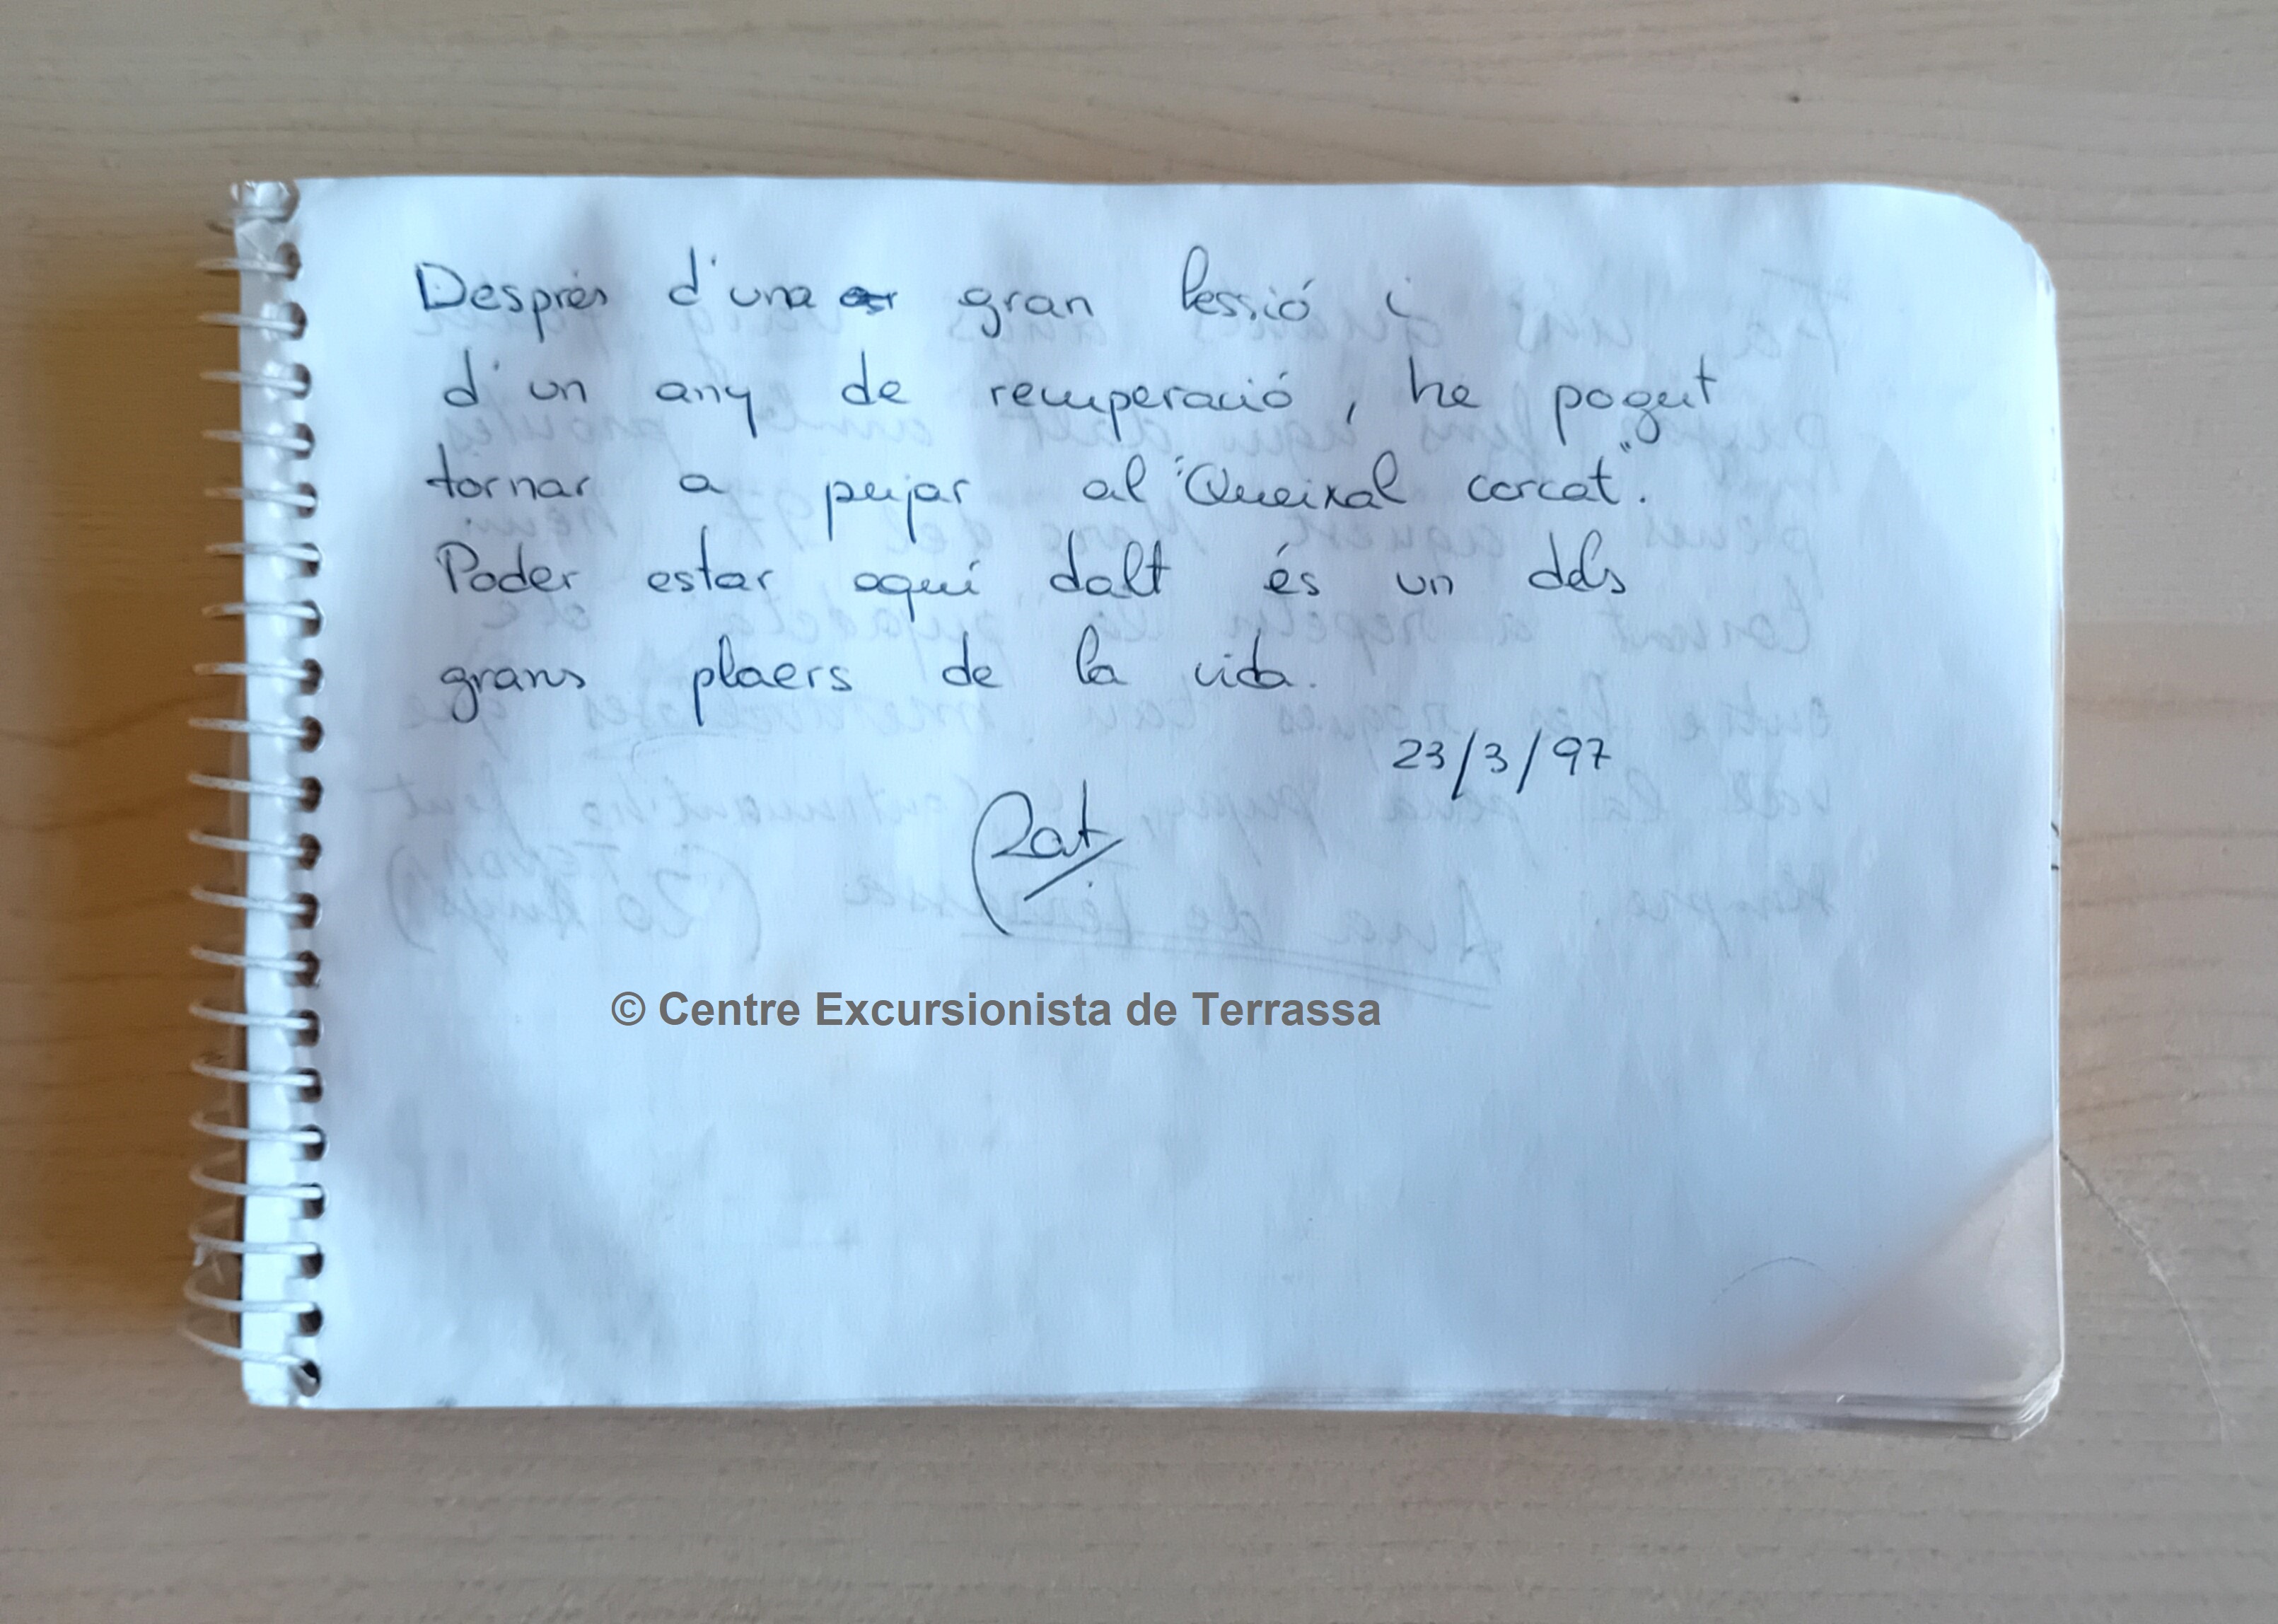 Després d'una gran lessió i
d'un any de recuperació, he pogut
tornar a pujar al "Queixal corcat".
Poder estar aquí dalt és un dels
grans plaers de la vida.
23/3/97
Rat
© Centre Excursionista de Terrassa